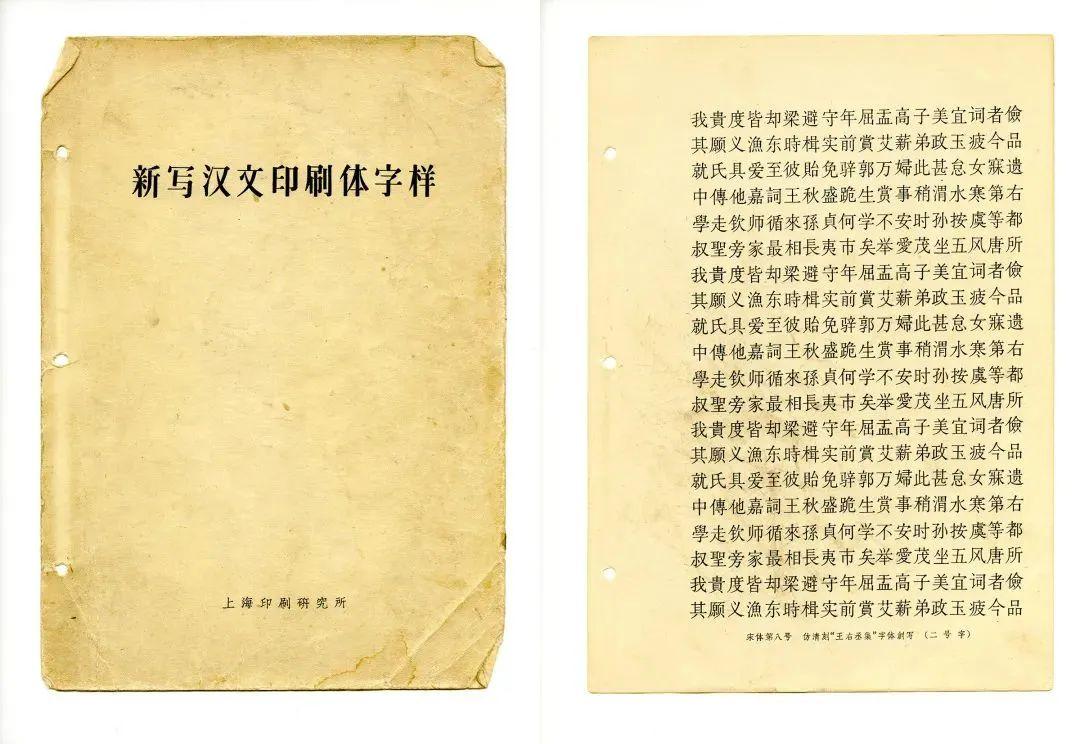 新写汉文印刷体字样
上海印刷研究所
我貴度皆却梁避守年屈盂高子美宜词者儉
其願义漁东時楫实前賞艾薪弟政玉疲今品
就氏具爱至彼貽免骍郭万婦此甚怠女寐遗
中傳他嘉詞王秋盛跪生賞事稍渭水寒第右
學走钦师循來孫貞何学不安时孙按虞等都
叔聖旁家最相長夷市矣举愛茂坐五风唐所
我貴度皆却梁避守年屈盂高子美宜词者儉
其願义漁东時楫实前賞艾薪弟政玉疲今品
就氏具爱至彼貽免骍郭万婦此甚怠女寐遗
中傳他嘉詞王秋盛跪生賞事稍渭水寒第右
學走钦师循來孫貞何学不安时孙按虞等都
叔聖旁家最相長夷市矣举愛茂坐五风唐所
我貴度皆却梁避守年屈盂高子美宜词者儉
其願义漁东時楫实前賞艾薪弟政玉疲今品
就氏具爱至彼貽免骍郭万婦此甚怠女寐遗
中傳他嘉詞王秋盛跪生賞事稍渭水寒第右
學走钦师循來孫貞何学不安时孙按虞等都
叔聖旁家最相長夷市矣举愛茂坐五风唐所
我貴度皆却梁避守年屈盂高子美宜词者儉
其願义漁东時楫实前賞艾薪弟政玉疲今品
宋体第八号 仿清刻“王右丞集”字体創写 （二号字）